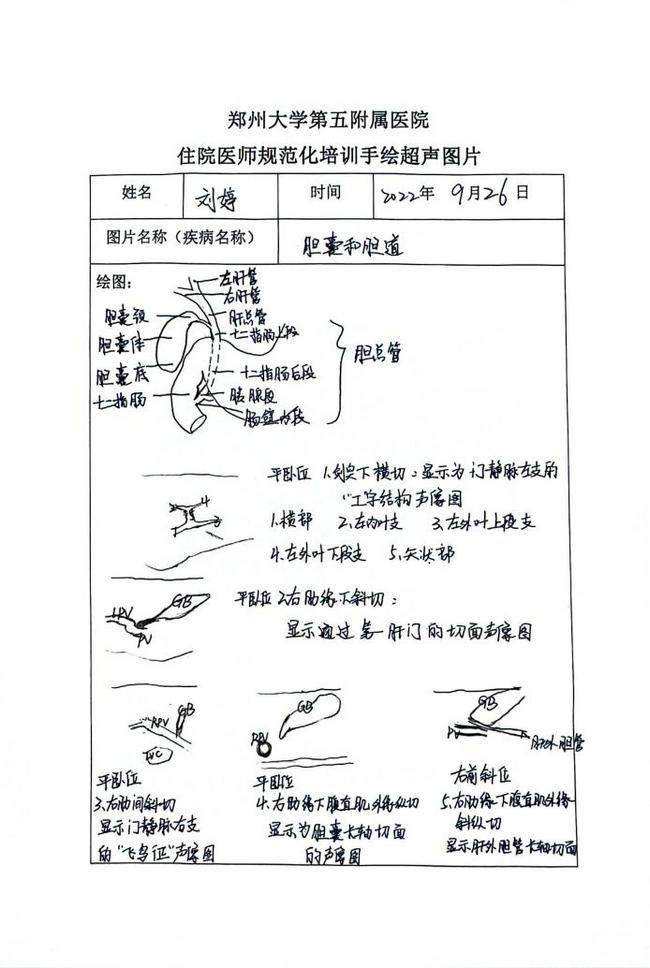 郑州大学第五附属医院
住院医师规范化培训手绘超声图片
姓名 刘婷 时间 2022年 9月26日
图片名称（疾病名称） 胆囊和胆道
绘图：
左肝管
右肝管
胆囊颈
肝总管
胆囊体
十二指肠上段
胆总管
胆囊底
十二指肠后段
十二指肠
胰腺段
肠壁内段
平卧位 1.剑突下横切：显示为门静脉左支的
“工字结构”声像图
1.横部 2.左内叶支 3.左外叶上段支
4.左外叶下段支 5.矢状部
4
5
GB
LPV
PV
平卧位 2.右肋缘下斜切：
显示通过第一肝门的切面声像图
RPV GB
IVC
GB
RPV
GB
PV
肝外胆管
平卧位
3.右肋间斜切
显示门静脉右支
的“飞鸟征”声像图
平卧位
4.右肋缘下腹直肌外缘纵切
显示为胆囊长轴切面
的声像图
右前斜位
5.右肋缘下腹直肌外缘
斜纵切
显示肝外胆管长轴切面